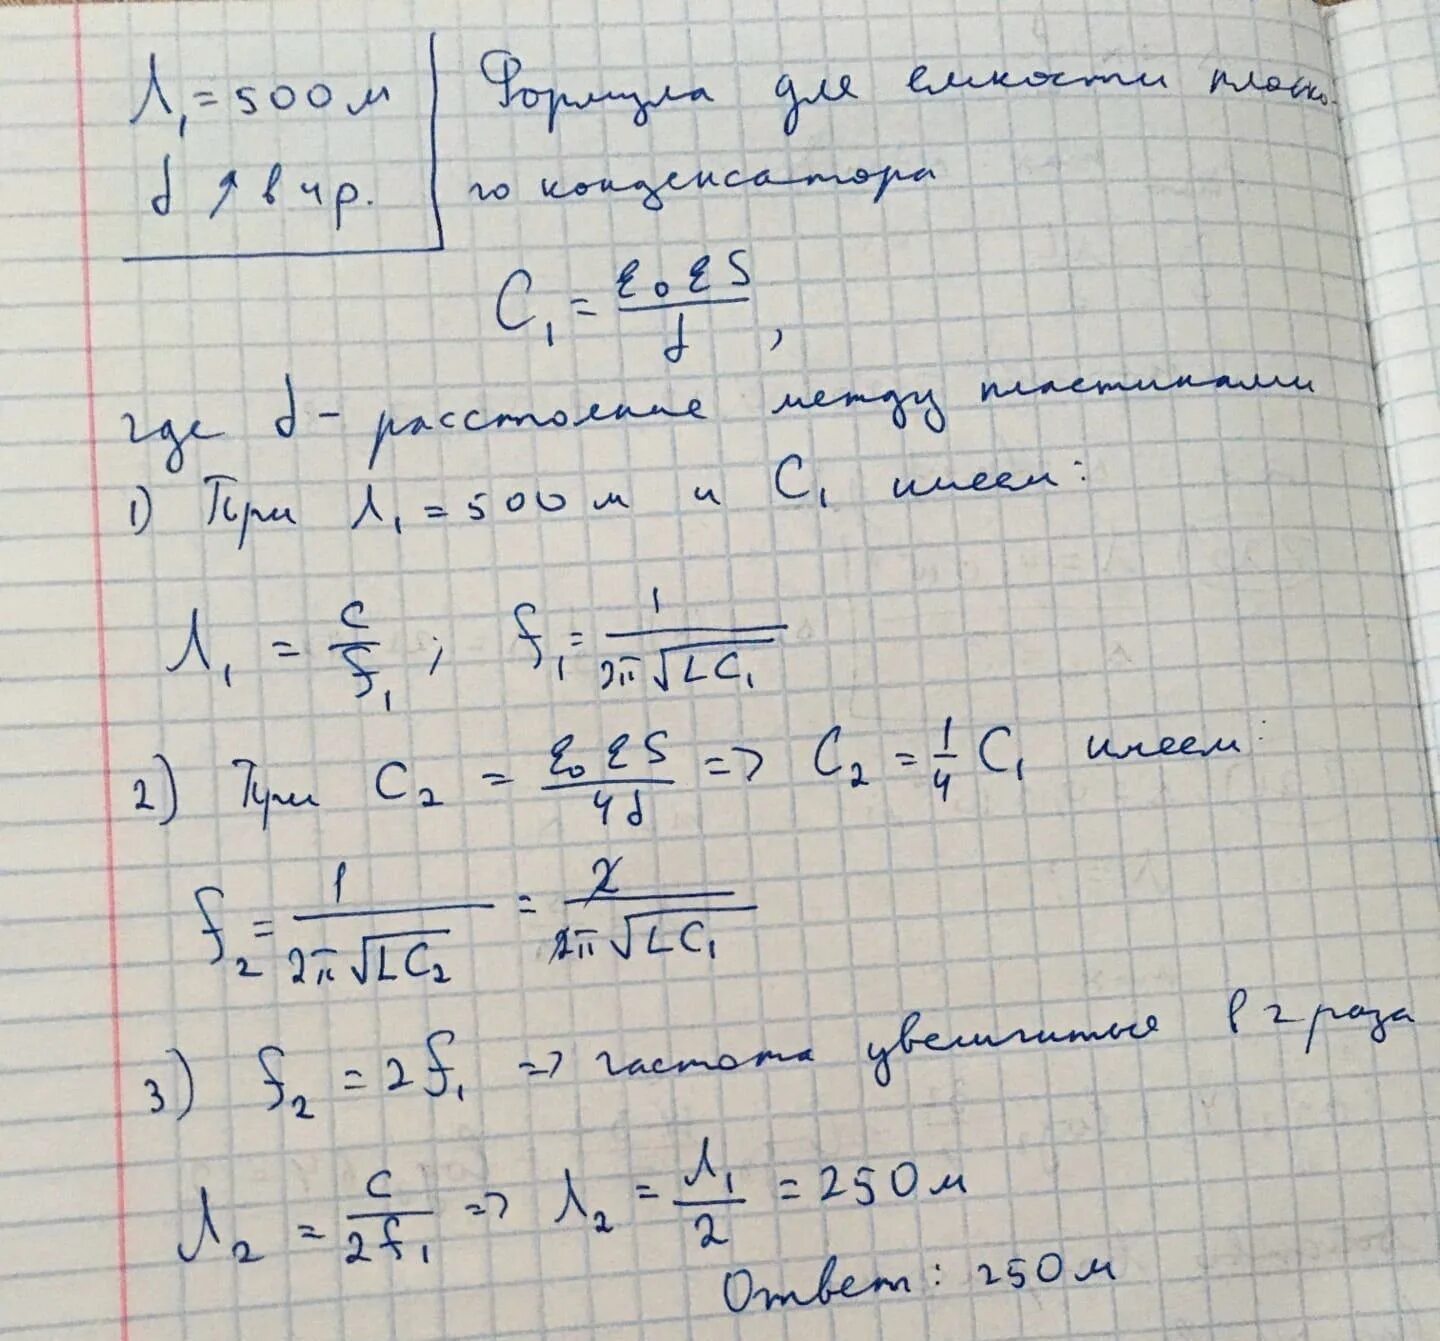 λ₁ = 500 м
d ↑ в 4 р.
Формула для емкости плоско-
го конденсатора
C₁ = ε₀εS/d ,
где d - расстояние между пластинами
1) При λ₁ = 500 м и C₁ имеем:
λ₁ = c/f₁ ; f₁ = 1/(2π√(LC₁))
2) При C₂ = ε₀εS/(4d) => C₂ = 1/4 C₁ имеем:
f₂ = 1/(2π√(LC₂)) = 2/(2π√(LC₁))
3) f₂ = 2f₁ => частота увеличится в 2 раза
λ₂ = c/(2f₁) => λ₂ = λ₁/2 = 250 м
Ответ: 250 м